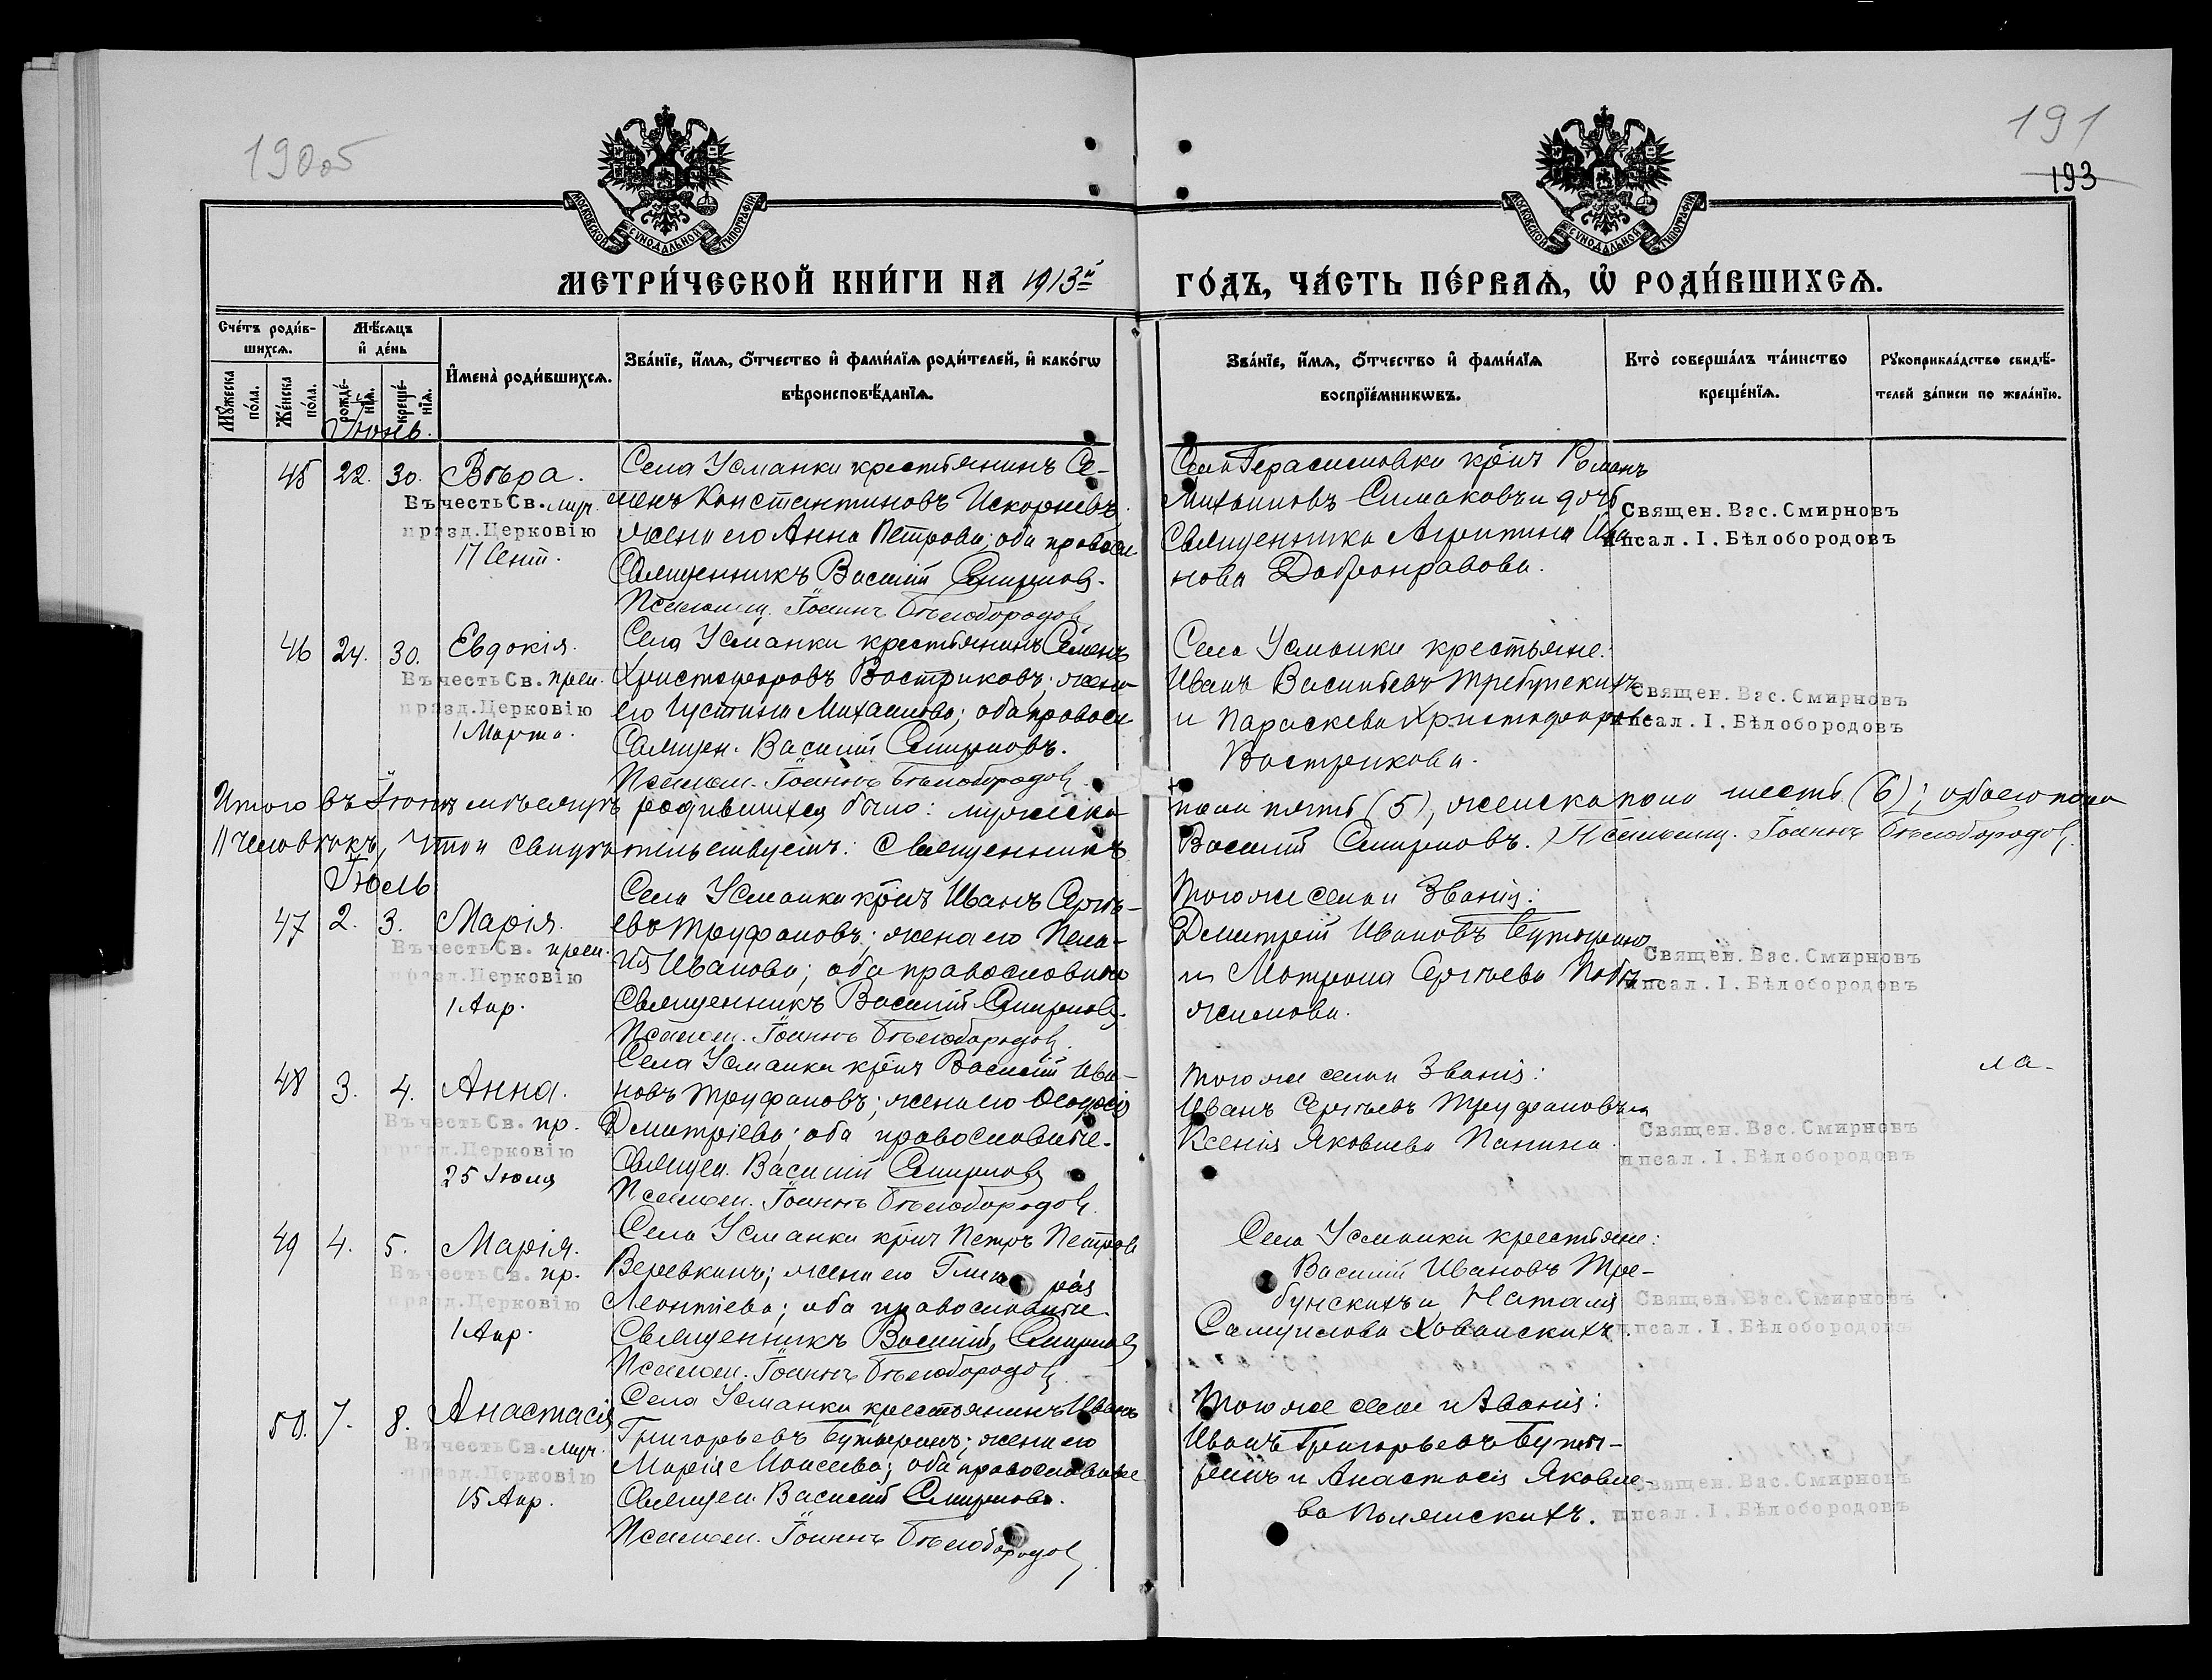 190об
191
193
МОСКОВСКОЙ СѴНОДАЛЬНОЙ ТИПОГРАФІИ
МОСКОВСКОЙ СѴНОДАЛЬНОЙ ТИПОГРАФІИ
МЕТРИ́ЧЕСКОЙ КНИ́ГИ НА 1913й
ГО́ДЪ, ЧА́СТЬ ПЕ́РВАѦ, Ѡ҆ РОДИ́ВШИХСѦ.
Сче́тъ роди́в-
шихсѧ.
Мѣ́сѧцъ
и҆ де́нь
Мꙋ́жеска
по́ла.
Же́нска
по́ла.
рожде́-
нїѧ.
креще́-
нїѧ.
И҆мена̀ роди́вшихсѧ.
Зва́нїе, и҆́мѧ, ѻ҆́тчество и҆ фами́лїѧ роди́телей, и҆ како́гѡ
вѣроисповѣ́данїѧ.
Зва́нїе, и҆́мѧ, ѻ҆́тчество и҆ фами́лїѧ
воспрїе́мникѡвъ.
Кто̀ соверша́лъ та́инство
креще́нїѧ.
Рꙋкоприкла́дство свидѣ́-
телей за́писи по жела́нїю.
Іюнь.
45 22. 30. Вѣра.
Въ честь Св. муч.
празд. Церковію
17 Сент.
Села Усманки крестьянинъ Се-
менъ Константиновъ Искорневъ
жена его Анна Петрова; оба правосл
Священникъ Василій Смирновъ.
Псаломщ. Іоаннъ Бѣлобородов
Села Герасимовки кр̃нъ Романъ
Михаиловъ Симаковъ и дочь
Священника Агрипина Ива
нова Добронравова.
Священ. Вас. Смирновъ
писал. І. Бѣлобородовъ
46 24. 30. Евдокія.
Въ честь Св. преп.
празд. Церковію
1 Марта.
Села Усманки крестьянинъ Семенъ
Христофоровъ Востриковъ; жена
его Устинія Михаилова; оба правосл
Священ. Василій Смирновъ.
Псаломщ. Іоаннъ Бѣлобородов
Села Усманки крестьяне:
Иванъ Васильевъ Требунскихъ
и Параскева Христофорова
Вострикова.
Священ. Вас. Смирновъ
писал. І. Бѣлобородовъ
Итого въ Іюнѣ мѣсяцѣ родившихся было: мужска пола пять (5), женска пола шесть (6); обоего пола
11 человѣкъ, Что и свидѣтельствуетъ: Священникъ Василій Смирновъ. Псаломщ. Іоаннъ Бѣлобородов.
Іюль
47 2. 3. Марія.
Въ честь Св. преп.
празд. Церковію
1 Апр.
Села Усманки кр̃нъ Иванъ Сергѣ-
евъ Труфановъ; жена его Пела-
гія Иванова; оба православные
Священникъ Василій Смирновъ.
Псаломщ. Іоаннъ Бѣлобородов.
Того же села и Званія:
Дмитрій Ивановъ Бутыринъ
и Матрона Сергѣева Побѣ-
жимова.
Священ. Вас. Смирновъ
писал. І. Бѣлобородовъ
48 3. 4. Анна.
Въ честь Св. пр.
празд. Церковію
25 Іюля
Села Усманки кр̃нъ Василій Ива-
новъ Труфановъ; жена его Ѳеодосія
Дмитріева; оба православные.
Священ. Василій Смирновъ
Псаломщ. Іоаннъ Бѣлобородов.
Того же села и Званія:
Иванъ Сергѣевъ Труфановъ и
Ксенія Яковлева Панина.
Священ. Вас. Смирновъ
писал. І. Бѣлобородовъ
ла-
49 4. 5. Марія.
Въ честь Св. пр.
празд. Церковію
1 Апр.
Села Усманки кр̃нъ Петръ Петров
Веревкинъ; жена его
Леонтіева; оба православные.
Священникъ Василій Смирновъ
Псаломщ. Іоаннъ Бѣлобородов.
Села Усманки крестьяне:
Василій Ивановъ Тре-
бунскихъ и Наталія
Самуилова Хованскихъ.
Священ. Вас. Смирновъ
писал. І. Бѣлобородовъ
50. 7. 8. Анастасія
Въ честь Св. муч.
празд. Церковію
15 Апр.
Села Усманки крестьянинъ Иванъ
Григорьевъ Бутыринъ; жена его
Марія Моисеева; оба православные
Священ. Василій Смирновъ.
Псаломщ. Іоаннъ Бѣлобородов.
Того же села и Званія:
Иванъ Григорьевъ Буты-
ринъ и Анастасія Яковле
ва Полянскихъ.
Священ. Вас. Смирновъ
писал. І. Бѣлобородовъ